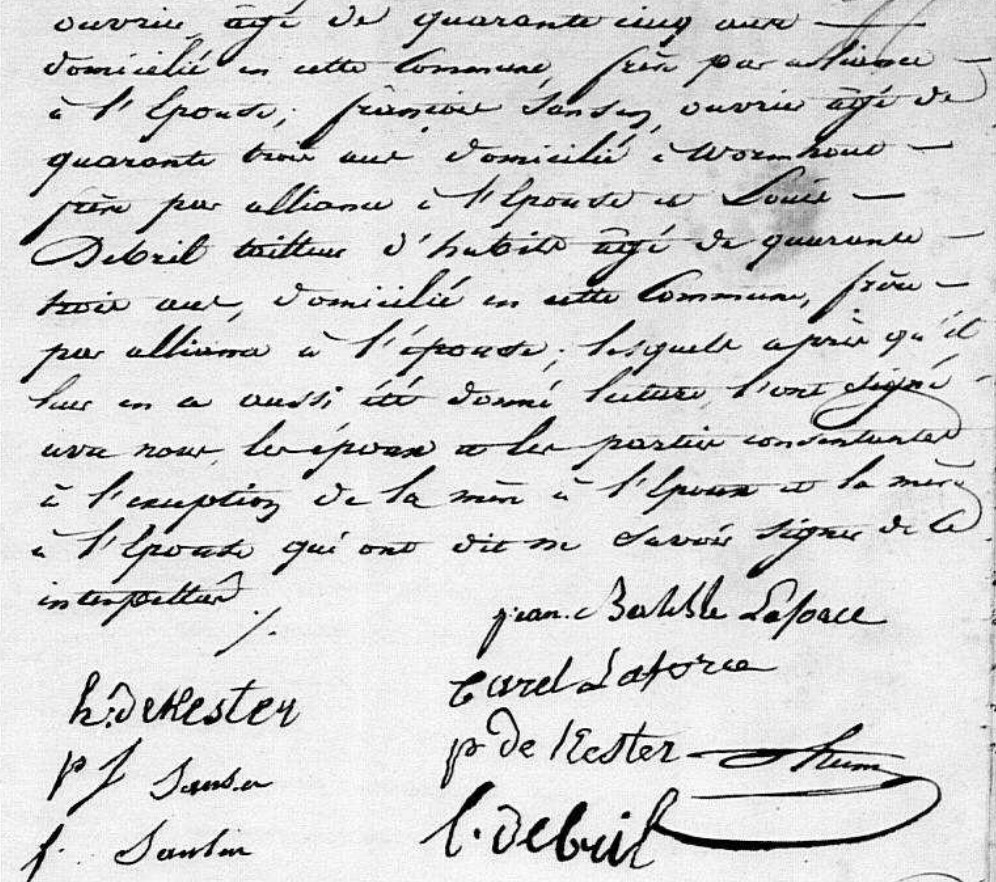 ouvrier, âgé de quarante cinq ans
domicilié en cette Commune, frère par alliance
à l'Epouse; françois Sansen, ouvrier âgé de
quarante trois ans domicilié à Wormhout
frère par alliance à l'Epouse et Louis
Debril tailleur d'habits âgé de quarante
trois ans, domicilié en cette Commune, frère
par alliance à l'épouse; lesquels après qu'il
leur en a aussi été donné lecture, l'ont signé
avec nous, les époux et les parties consentantes
à l'exception de la mère à l'Epoux et la mère
à l'Epouse qui ont dit ne savoir signer de ce
interpellées ./.
jean Laforce
h. deKester
Carel Laforce
p de Kester
p j Sansen
l. debril
f. Sansen